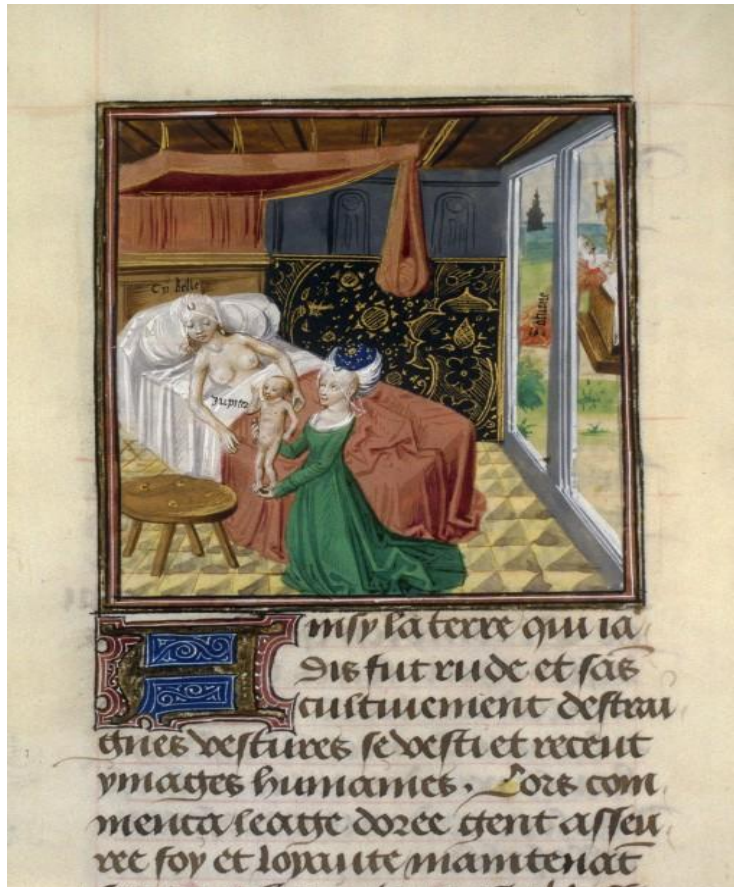 Cybelle
Jupiter
Saturne
Ainsy la terre qui ia
dis fut rude et sās
cultiuement destrau
gnes vestures se vesti et receut
ymages humaines. Lors com
menca leage doree gent asseu
ree foy et loyaute maintenāt